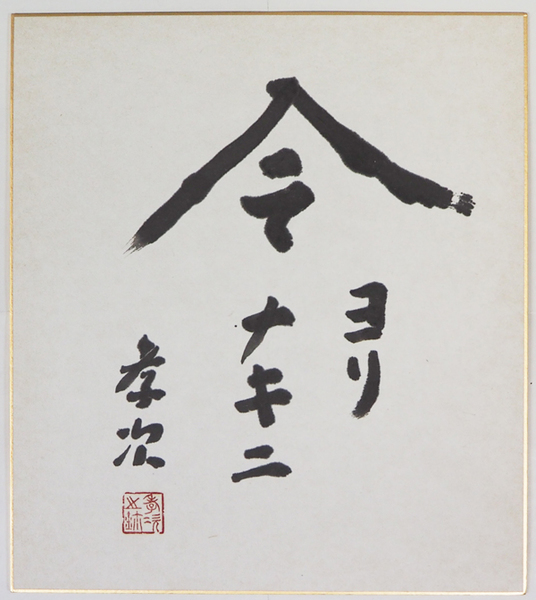 今
ヨリ
ナキニ
孝次